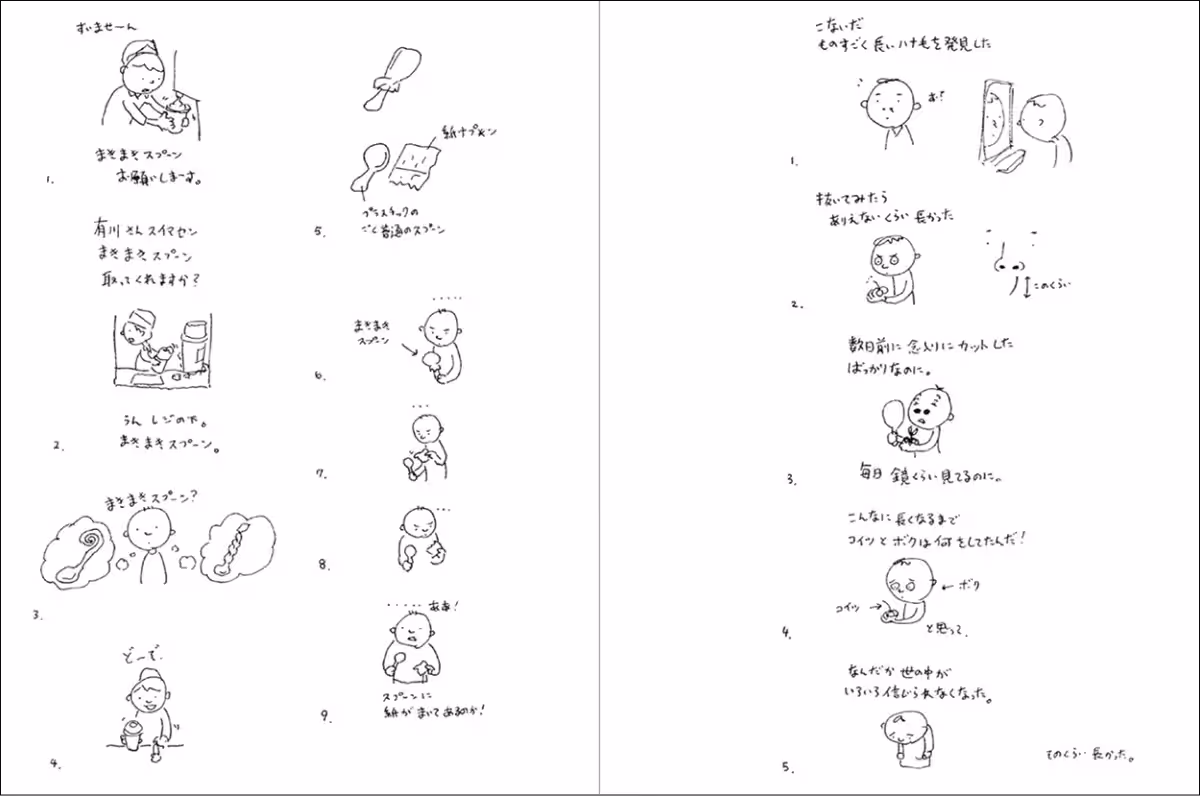 すいませーん
まきまきスプーン
お願いしまーす。
1.
有川さんスイマセン
まきまきスプーン
取ってくれますか?
うん レジの下。
まきまきスプーン。
2.
まきまきスプーン?
3.
どーぞ.
4.
紙ナプキン
プラスチックの
ごく普通のスプーン
5.
・・・・・
まきまき
スプーン
6.
・・・
7.
・・・
8.
・・・・・ ああ!
スプーンに
紙がまいてあるのか!
9.
こないだ
ものすごく長いハナ毛を発見した
お!
1.
抜いてみたら
ありえないくらい長かった
このくらい
2.
数日前に念入りにカットした
ばっかりなのに。
3.
毎日 鏡くらい見てるのに。
こんなに長くなるまで
コイツとボクは何をしてたんだ!
ボク
コイツ
4.
と思って.
なんだか世の中が
いろいろ信じられなくなった。
5.
そのくらい長かった。